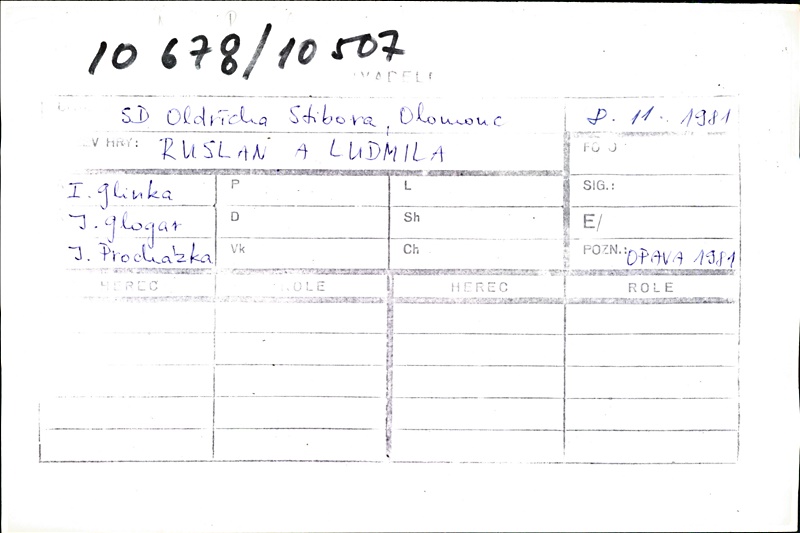 10 678/10 507
SD Oldřicha Stibora, Olomouc 8. 11. 1981
V HRY: RUSLAN A LUDMILA
I. Glinka P L SIG.:
J. Glogar D Sh E/
J. Procházka Vk Ch POZN.: OPAVA 1981
HEREC ROLE HEREC ROLE